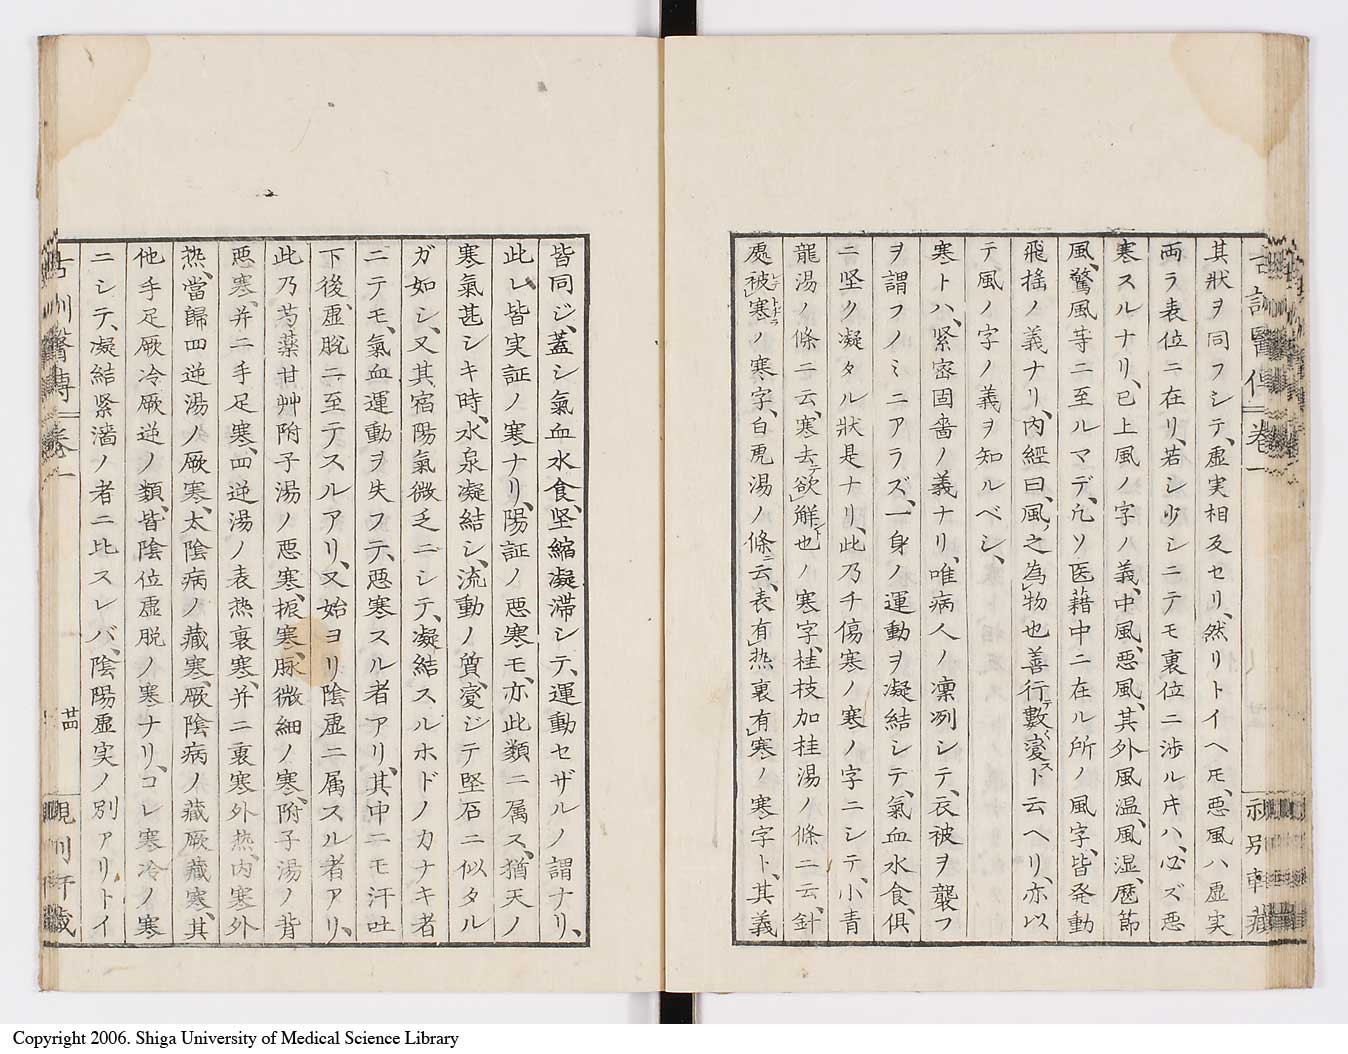 其狀ヲ同フシテ、虚実相及セリ、然リトイヘ𪜈、悪風ハ虚実
両ラ表位ニ在リ、若シ少シニテモ裏位ニ渉ル𪜈ハ、必ズ悪
寒スルナリ、已上風ノ字ノ義、中風、悪風、其外風温、風湿、歴節
風、驚風等ニ至ルマデ、凢ソ医藉中ニ在ル所ノ風字、皆発動
飛揺ノ義ナリ、内經曰、風之為物也善行テ數〻変スト云ヘリ、亦以
テ風ノ字ノ義ヲ知ルベシ、
寒トハ、緊密固嗇ノ義ナリ、唯病人ノ凜冽シテ、衣被ヲ襲フ
ヲ謂フノミニアラズ、一身ノ運動ヲ凝結シテ、氣血水食、俱
ニ坚ク凝タル狀是ナリ、此乃チ傷寒ノ寒ノ字ニシテ、小青
龍湯ノ條ニ云、寒去テ欲解ント也ノ寒字、桂枝加桂湯ノ條ニ云、針
處被寒ノ寒字、白虎湯ノ條ニ云、表有热裏有寒ノ寒字ト、其義
古訓醫傳 卷一
皆同ジ、蓋シ氣血水食、坚縮凝滞シテ、運動セザルノ謂ナリ、
此レ皆実証ノ寒ナリ、陽証ノ悪寒モ、亦此類ニ属ス、猶天ノ
寒氣甚シキ時、水泉凝結シ、流動ノ質、変ジテ堅石ニ似タル
ガ如シ、又其宿陽氣微乏ニシテ、凝結スルホドノカナキ者
ニテモ、氣血運動ヲ失フテ、悪寒スル者アリ、其中ニモ汗吐
下後、虚脱ニ至テスルアリ、又始ヨリ陰虚ニ属スル者アリ、
此乃芍藥甘艸附子湯ノ悪寒、振寒、脉微細ノ寒、附子湯ノ背
悪寒、并ニ手足寒、四逆湯ノ表热裏寒、并ニ裏寒外热、内寒外
热、當歸四逆湯ノ厥寒、太陰病ノ藏寒、厥陰病ノ藏厥藏寒、其
他手足厥冷厥逆ノ類、皆陰位虚脱ノ寒ナリ、コレ寒冷ノ寒
ニシテ、凝結紧濇ノ者ニ比スレバ、陰陽虚実ノ別アリトイ
古訓醫傳 卷一
卄四